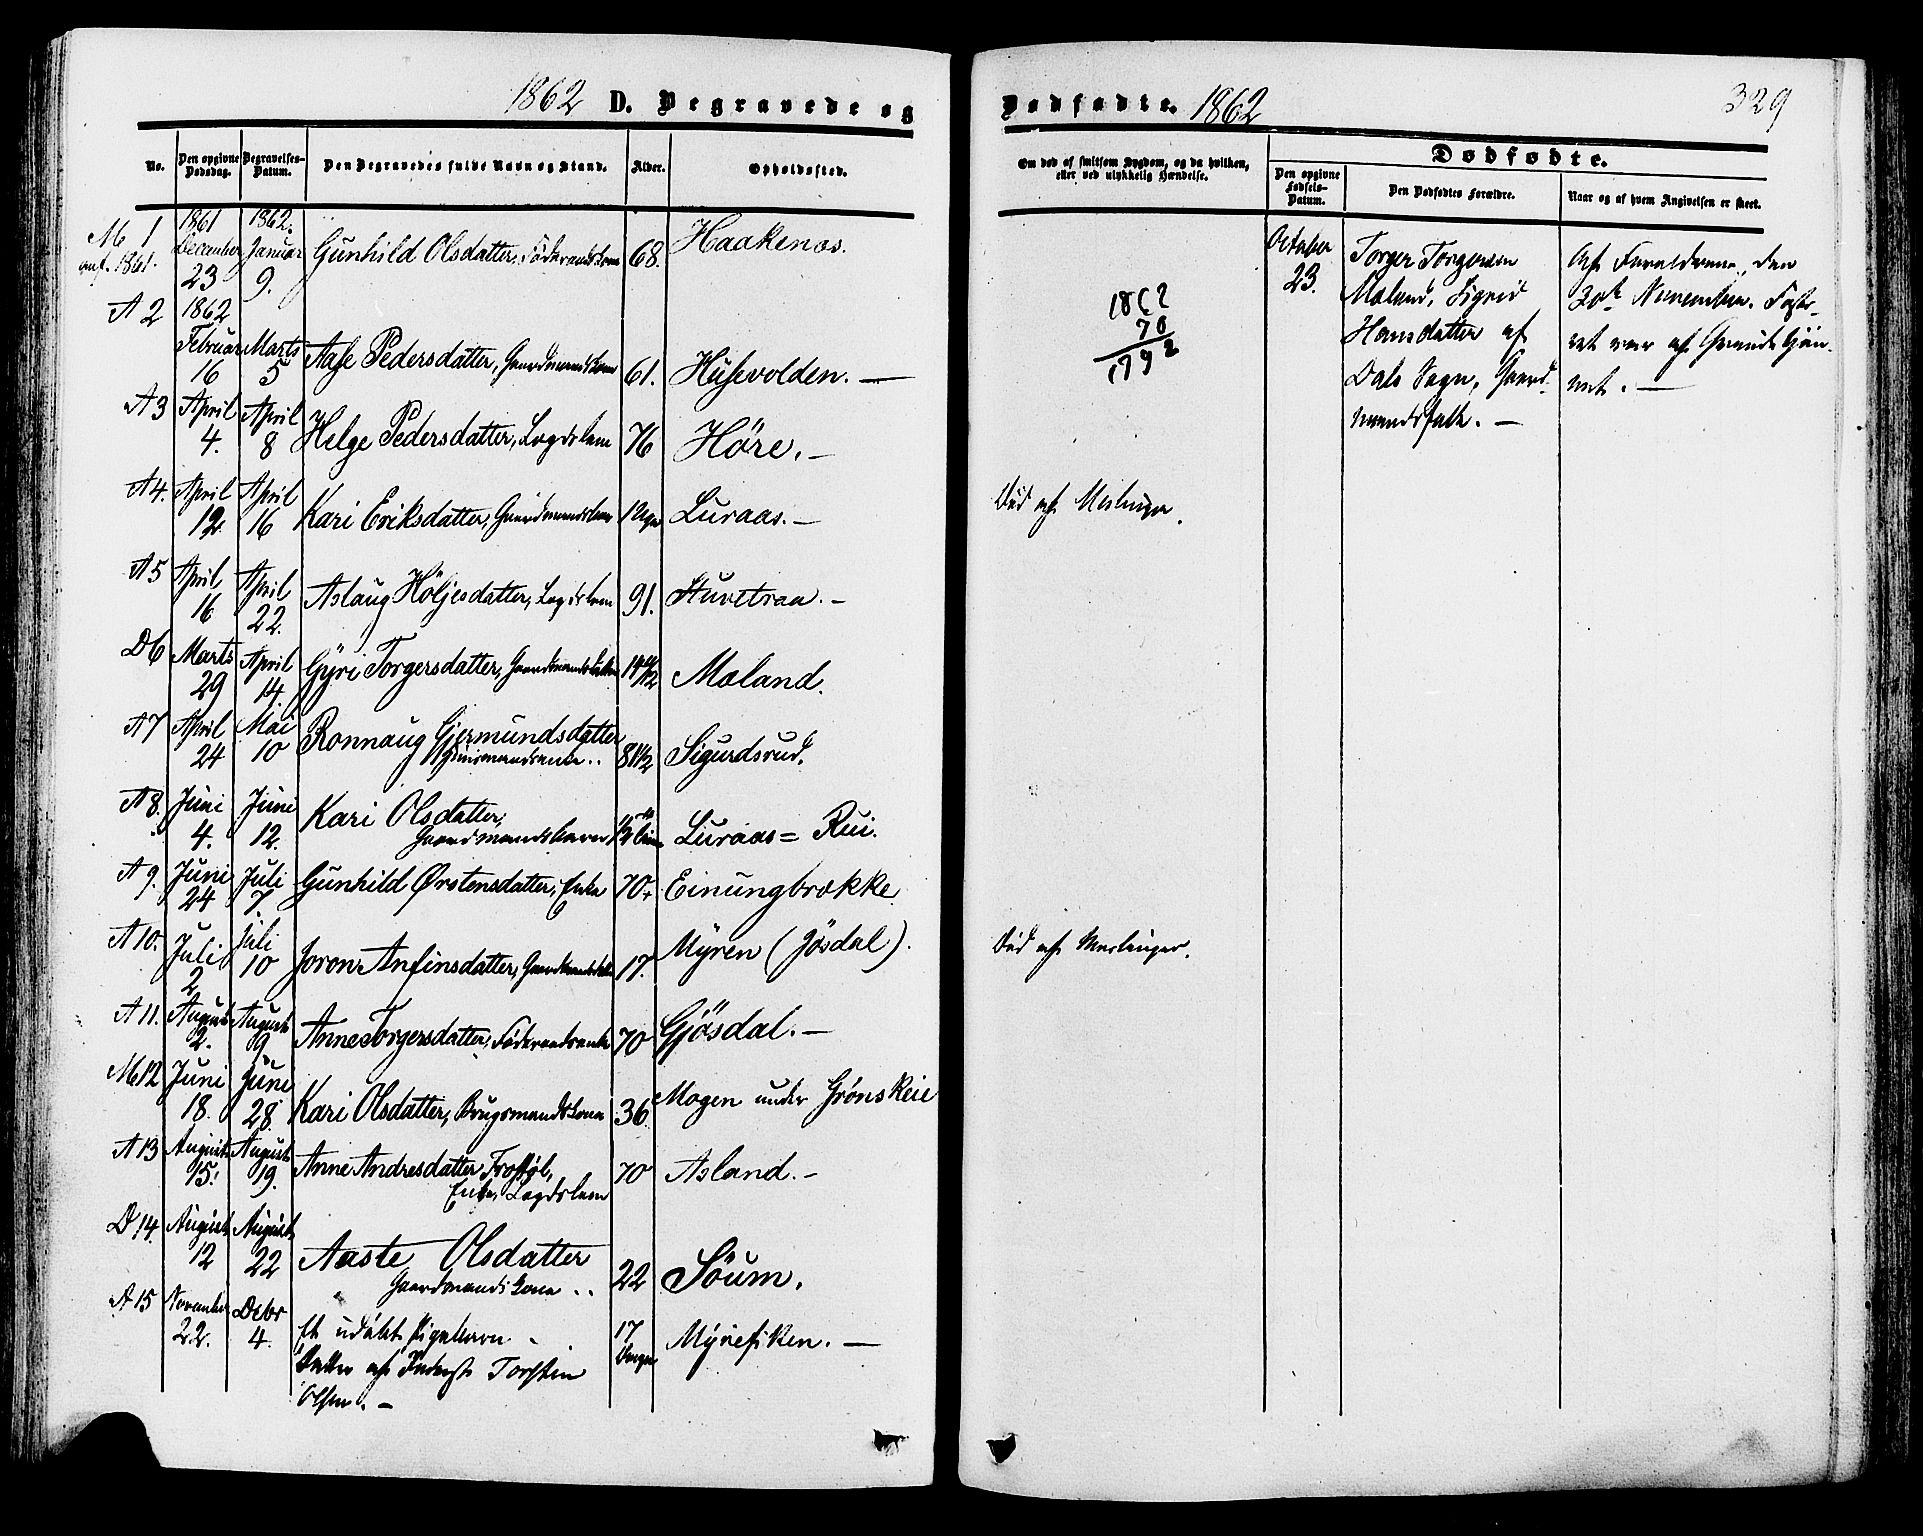 1862 D. Begravede og
No.
Den opgivne Dødsdag.
Begravelses-Datum.
Den Begravedes fulde Navn og Stand.
Alder.
Opholdssted.
M 1 1861 December 23 1862. Januar 9. Gunhild Olsdatter, Føderaadskone 68. Haakenæs.
anf. 1861.
A 2 1862 Februar 16 Marts 5 Aase Pedersdatter, Gaardmandskone 61. Husevolden. —
A 3 April 4. April 8 Helge Pedersdatter, Lægdslem 76 Höre. —
A 4. April 12. April 16 Kari Eriksdatter, 1 Uge Luraas. —
A 5 April 16 April 22. Aslaug Höljesdatter, Lægdslem 91. Stuvetraa. —
D 6 Marts 29 April 14. Gyri Torgersdatter, Gaardmandsdatter Mæland.
A 7 April 24 Mai 10 Ronnaug Gjermundsdatter
Huusmandsenke .. 81 1/2 Sigurdsrud.
A 8. Juni 4. Juni 12. Kari Olsdatter,
Gaardmandsbarn Luraas = Rui.
A 9. Juni 24 Juli 7 Gunhild Østensdatter, Enke 70. Einungbrække
A 10. Juli 2 Juli 10 Joron Anfinsdatter, 17. Myren (Jösdal).
A 11. August 2. August 9. Anne Torgersdatter, Föderaadsenke 70 Gjösdal. —
M 12 Juni 18. Juni 28. Kari Olsdatter, Brugsmandskone 36. Mogen under Grönskeie
A 13 August 15. August 19. Anne Andresdatter
Enke, Lægdslem 70 Asland. —
D 14. August 12 August 22 Aaste Olsdatter
Gaardmandskone .. 22 Söum.
A 15 November 22. Decbr 4. Et udøbt Pigebarn — 17 Dage Myrefiken. —
Datter af Inderst Torsten
Olsen. —
Dødfødte. 1862
329
Om død af smitsom Sygdom, og da hvilken,
eller ved ulykkelig Hændelse.
Dødfødte.
Den opgivne Fødsels-Datum.
Den Dødfødtes Forældre.
Naar og af hvem Angivelsen er skeet.
October 23.
Torger Torgersen
Mæland, Sigrid
Hansdatter af
Dals Sogn, Gaard-
mandsfolk. —
Af Forældrene, den
30te November. Foste-
ret var af
1862
70
1792
Död af Meslinger.
Död af Meslinger.